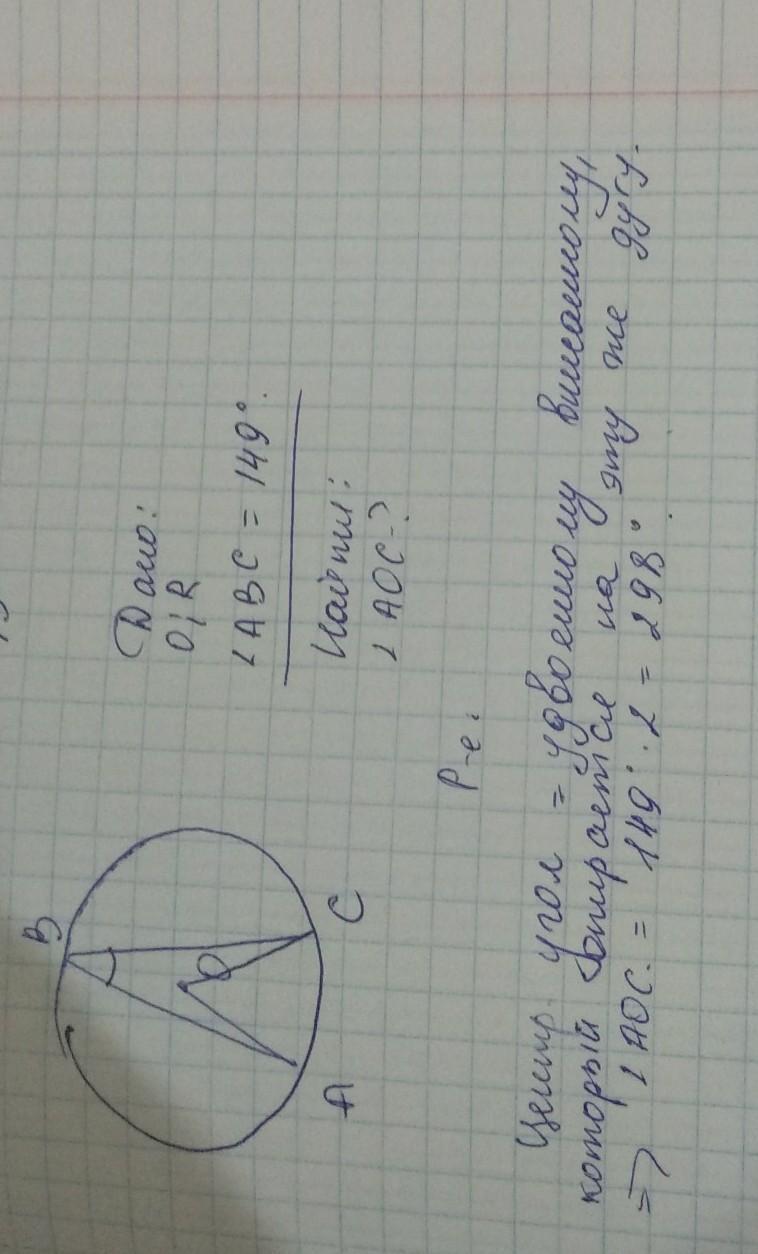 B
O
A
C
Дано:
O; R
∠ABC = 149°.
Найти:
∠AOC-?
Р-е:
Центр. угол = удвоенному вписанному,
который опирается на эту же дугу.
=> ∠AOC. = 149°·2 = 298°.